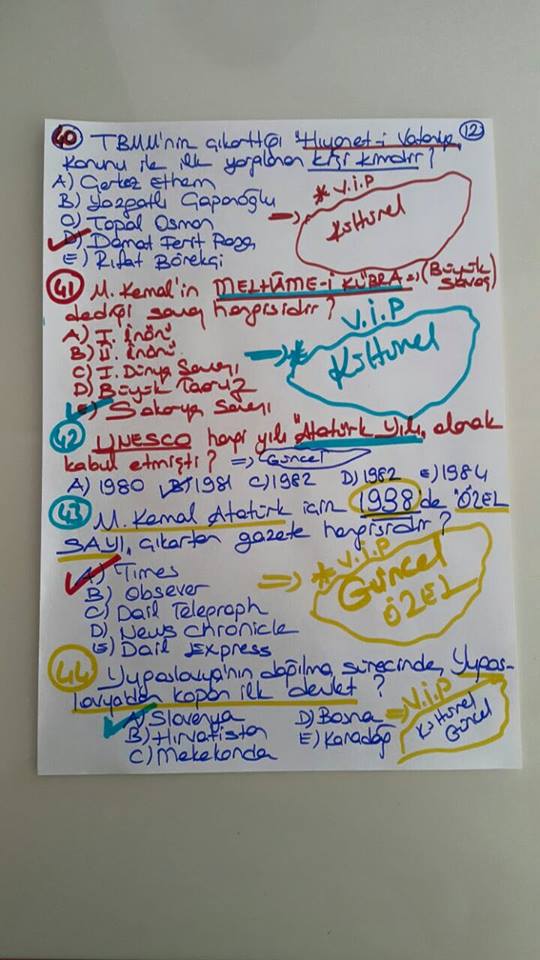 40) TBMM'nin çıkarttığı "Hıyanet-i Vataniye, 12
Kanunu ile ilk yargılanan kişi kimdir?
A) Çerkez Ethem
B) Yozgatlı Çapanoğlu
C) Topal Osman
D) Damat Ferit Paşa
E) Rıfat Börekçi
=> * V.İ.P
Kültürel
41 M. Kemal'in MELHÂME-İ KÜBRA => (Büyük Savaş)
dediği savaş hangisidir?
A) I. İnönü
B) II. İnönü
C) I. Dünya Savaşı
D) Büyük Taaruz
E) Sakarya Savaşı
=> * V.İ.P
Kültürel
42 UNESCO hangi yılı "Atatürk Yılı, olarak
kabul etmişti? => Güncel
A) 1980 B) 1981 C) 1982 D) 1982 E) 1984
43 M. Kemal Atatürk için 1938 de "ÖZEL
SAYI, çıkartan gazete hangisidir?
A) Times
B) Obsever
C) Dail Telegraph
D) News Chronicle
E) Dail Express
=> * V.İ.P
Güncel
ÖZEL
44 Yugoslavya'nın dağılma sürecinde, Yugos-
lavya'dan kopan ilk devlet?
A) Slovenya D) Bosna
B) Hırvatistan E) Karadağ
C) Makekonda
=> V.İ.P
Kültürel
Güncel